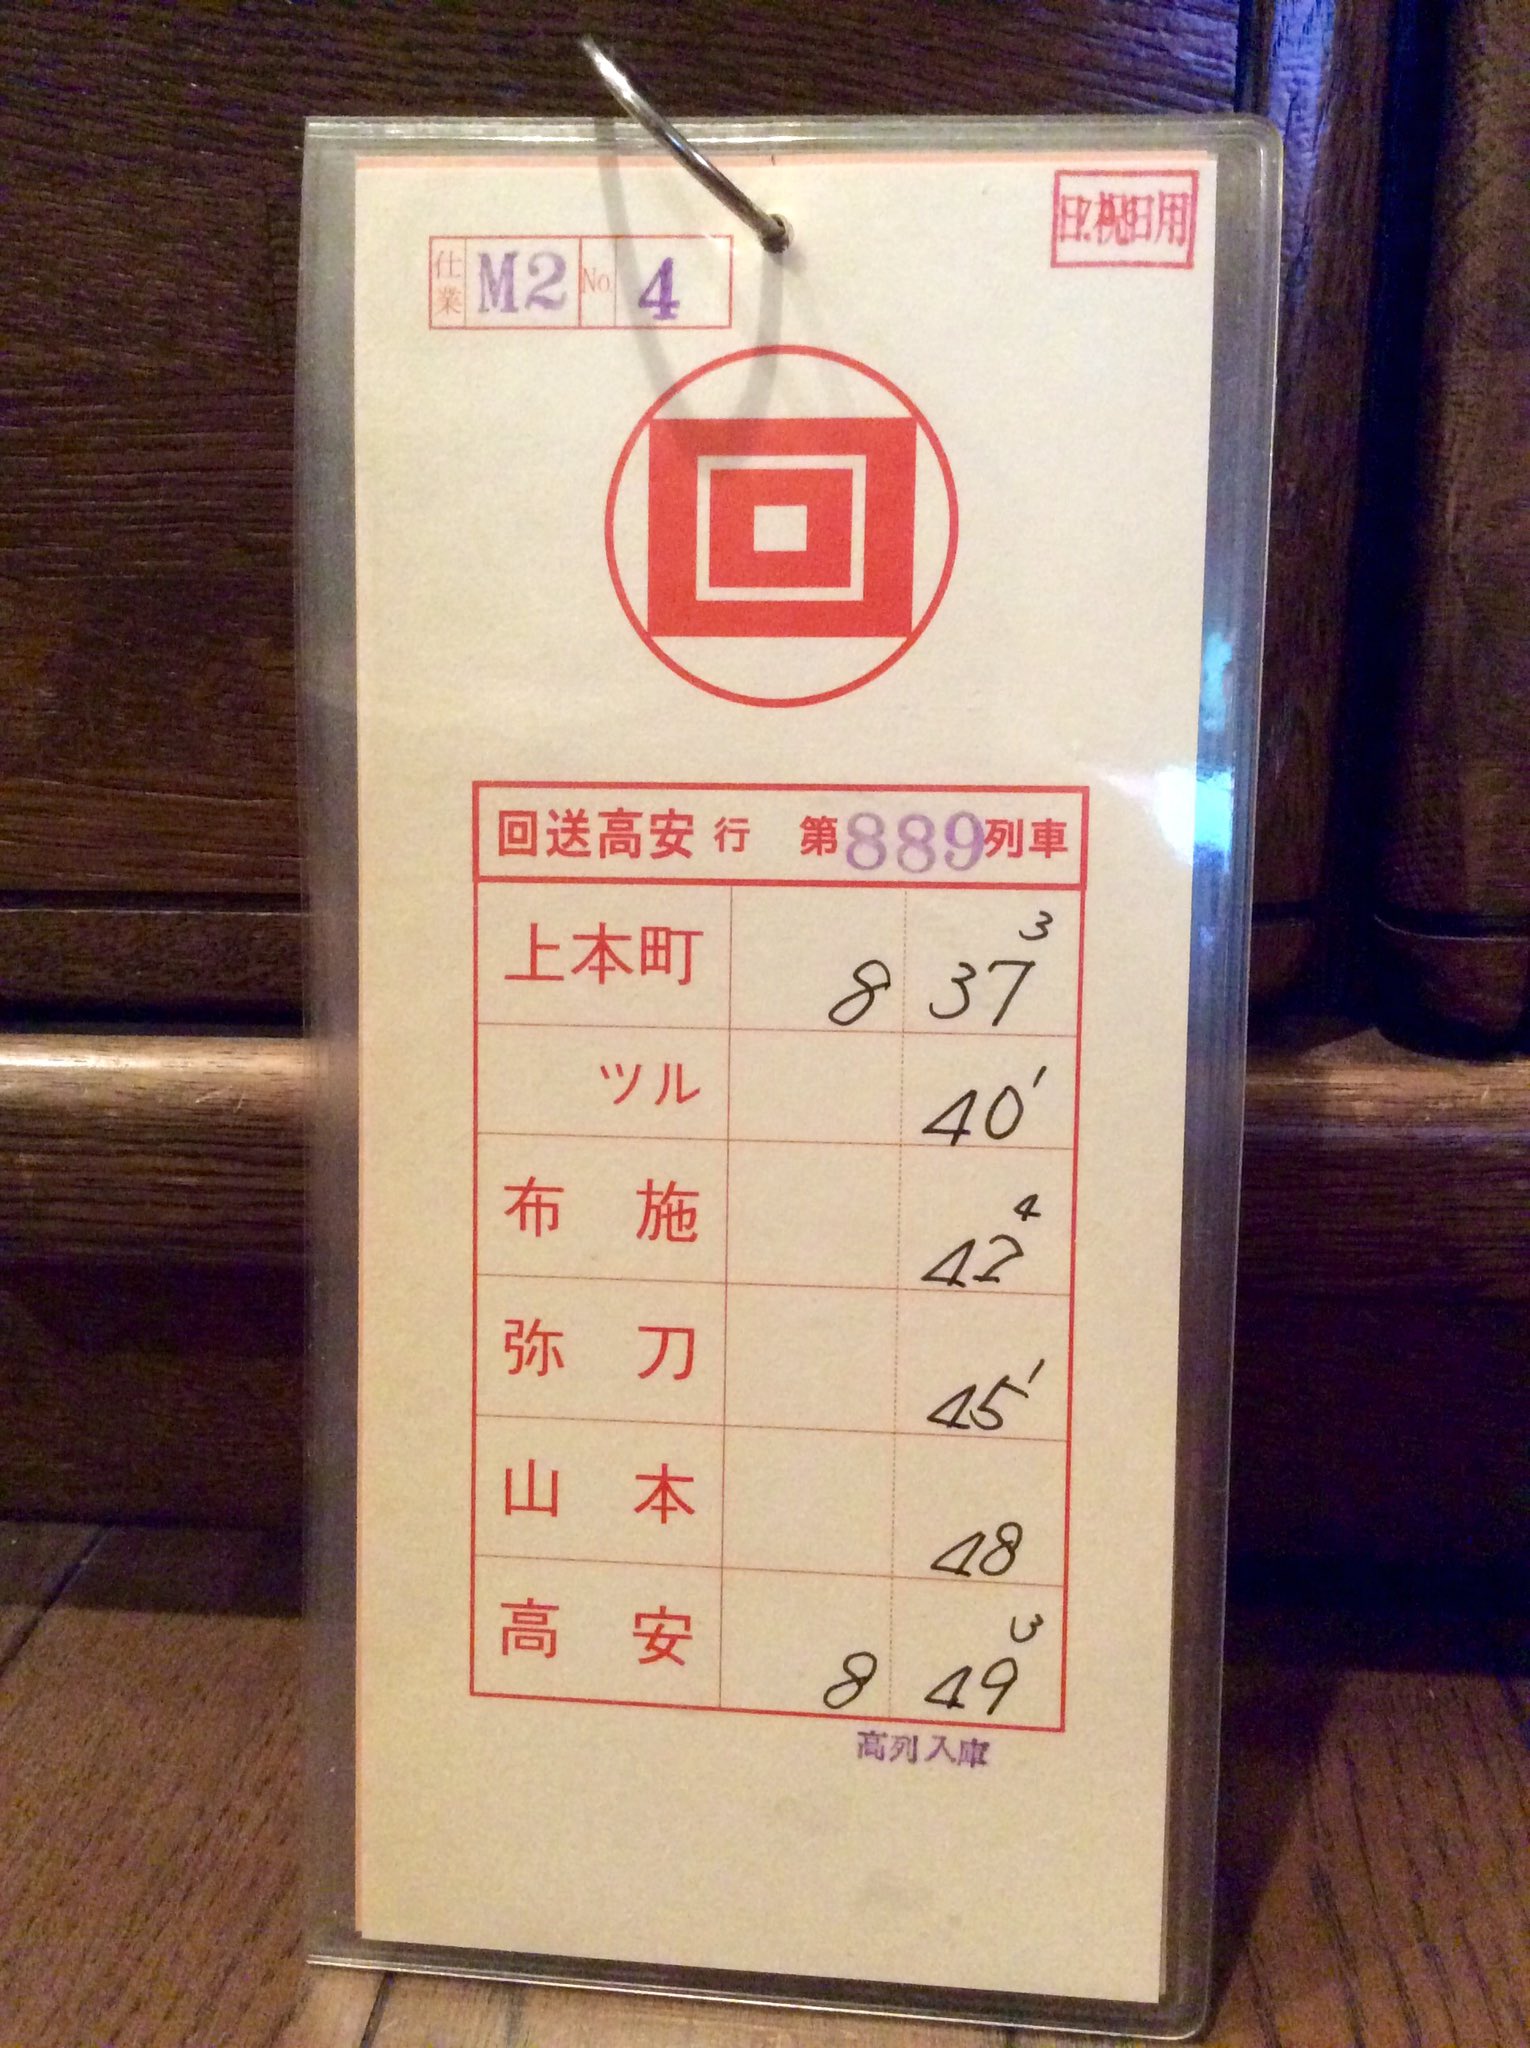 日.祝日用
仕業 M2 No. 4
回
回送高安行 第889列車
上本町 8 37 3
ツル 40 1
布施 42 4
弥刀 45 1
山本 48
高安 8 49 3
高列入庫